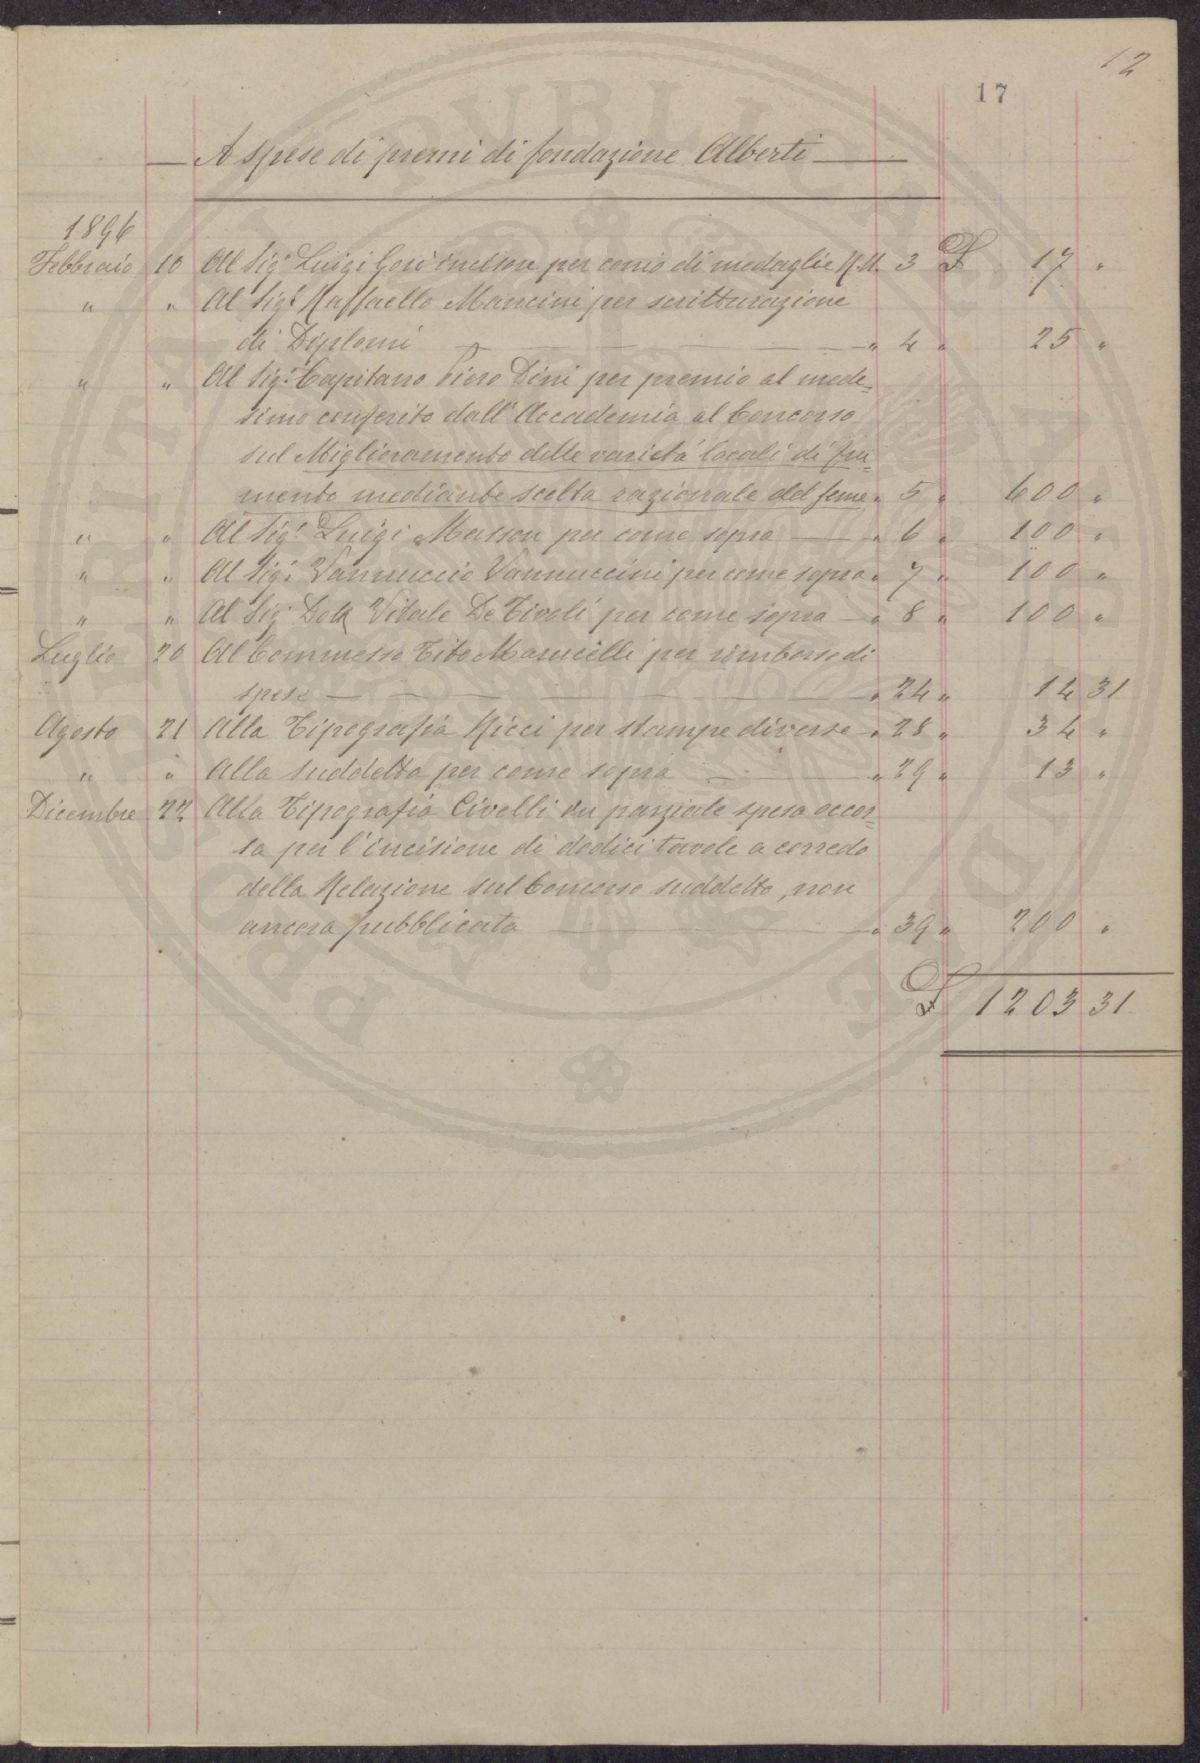 12
17
A spese di premi di fondazione Alberti
1896
Febbraio 10 Al Sigr Luigi Gori incisore per conio di medaglie N.M. 3 £ 17 "
" " Al Sigr Raffaello Mancini per scritturazione
di Diplomi " 4 " 25 "
" " Al Sigr Capitano Piero Dini per premio al mede=
simo conferito dall'Accademia al Concorso
sul Miglioramento delle varietà locali di fru=
mento mediante scelta razionale del seme " 5 " 600 "
" " Al Sigr Luigi Masson per come sopra " 6 " 100 "
" " Al Sigr Vannuccio Vannuccini per come sopra " 7 " 100 "
" " Al Sigr Dott Vitale De Tivoli per come sopra " 8 " 100 "
Luglio 20 Al Commesso Tito Marucelli per rimborso di
spese " 24 " 14 31
Agosto 21 Alla Tipografia Ricci per stampe diverse " 28 " 34 "
" " Alla suddetta per come sopra " 29 " 13 "
Dicembre 22 Alla Tipografia Civelli in parziale spesa occor=
sa per l'incisione di dodici tavole a corredo
della Relazione sul Concorso suddetto, non
ancora pubblicata " 39 " 200 "
£ 1203 31